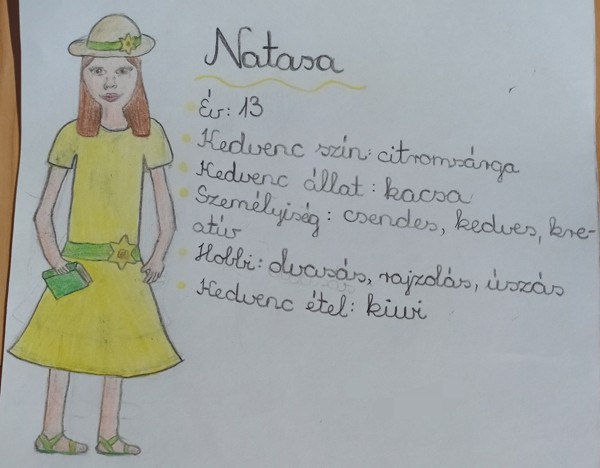 Natasa
Év: 13
Kedvenc szín: citromsárga
Kedvenc állat: kacsa
Személyiség: csendes, kedves, kre-
atív
Hobbi: olvasás, rajzolás, úszás
Kedvenc étel: kiwi